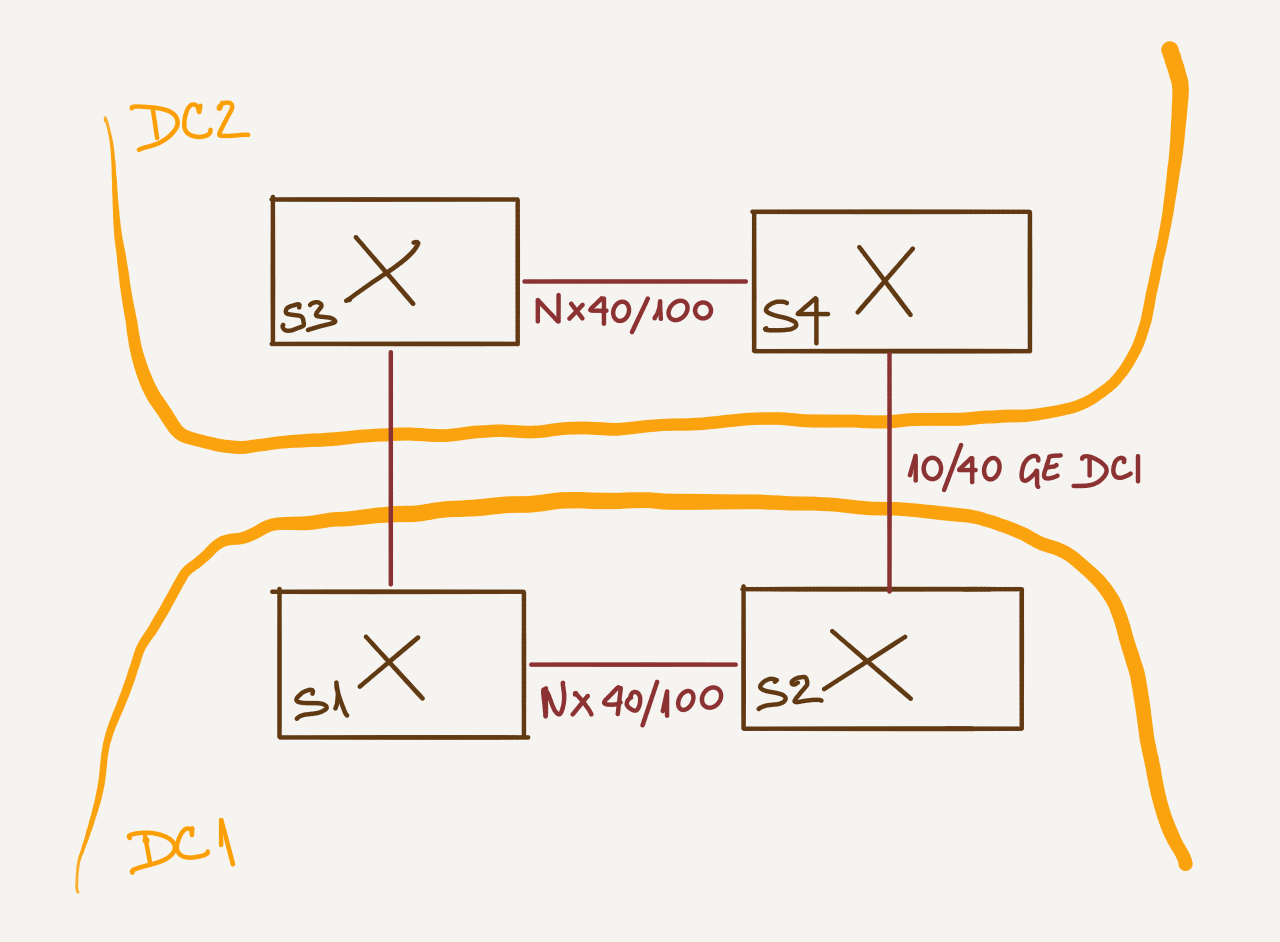 DC2
S3
Nx40/100
S4
10/40 GE DCI
S1
Nx40/100
S2
DC1